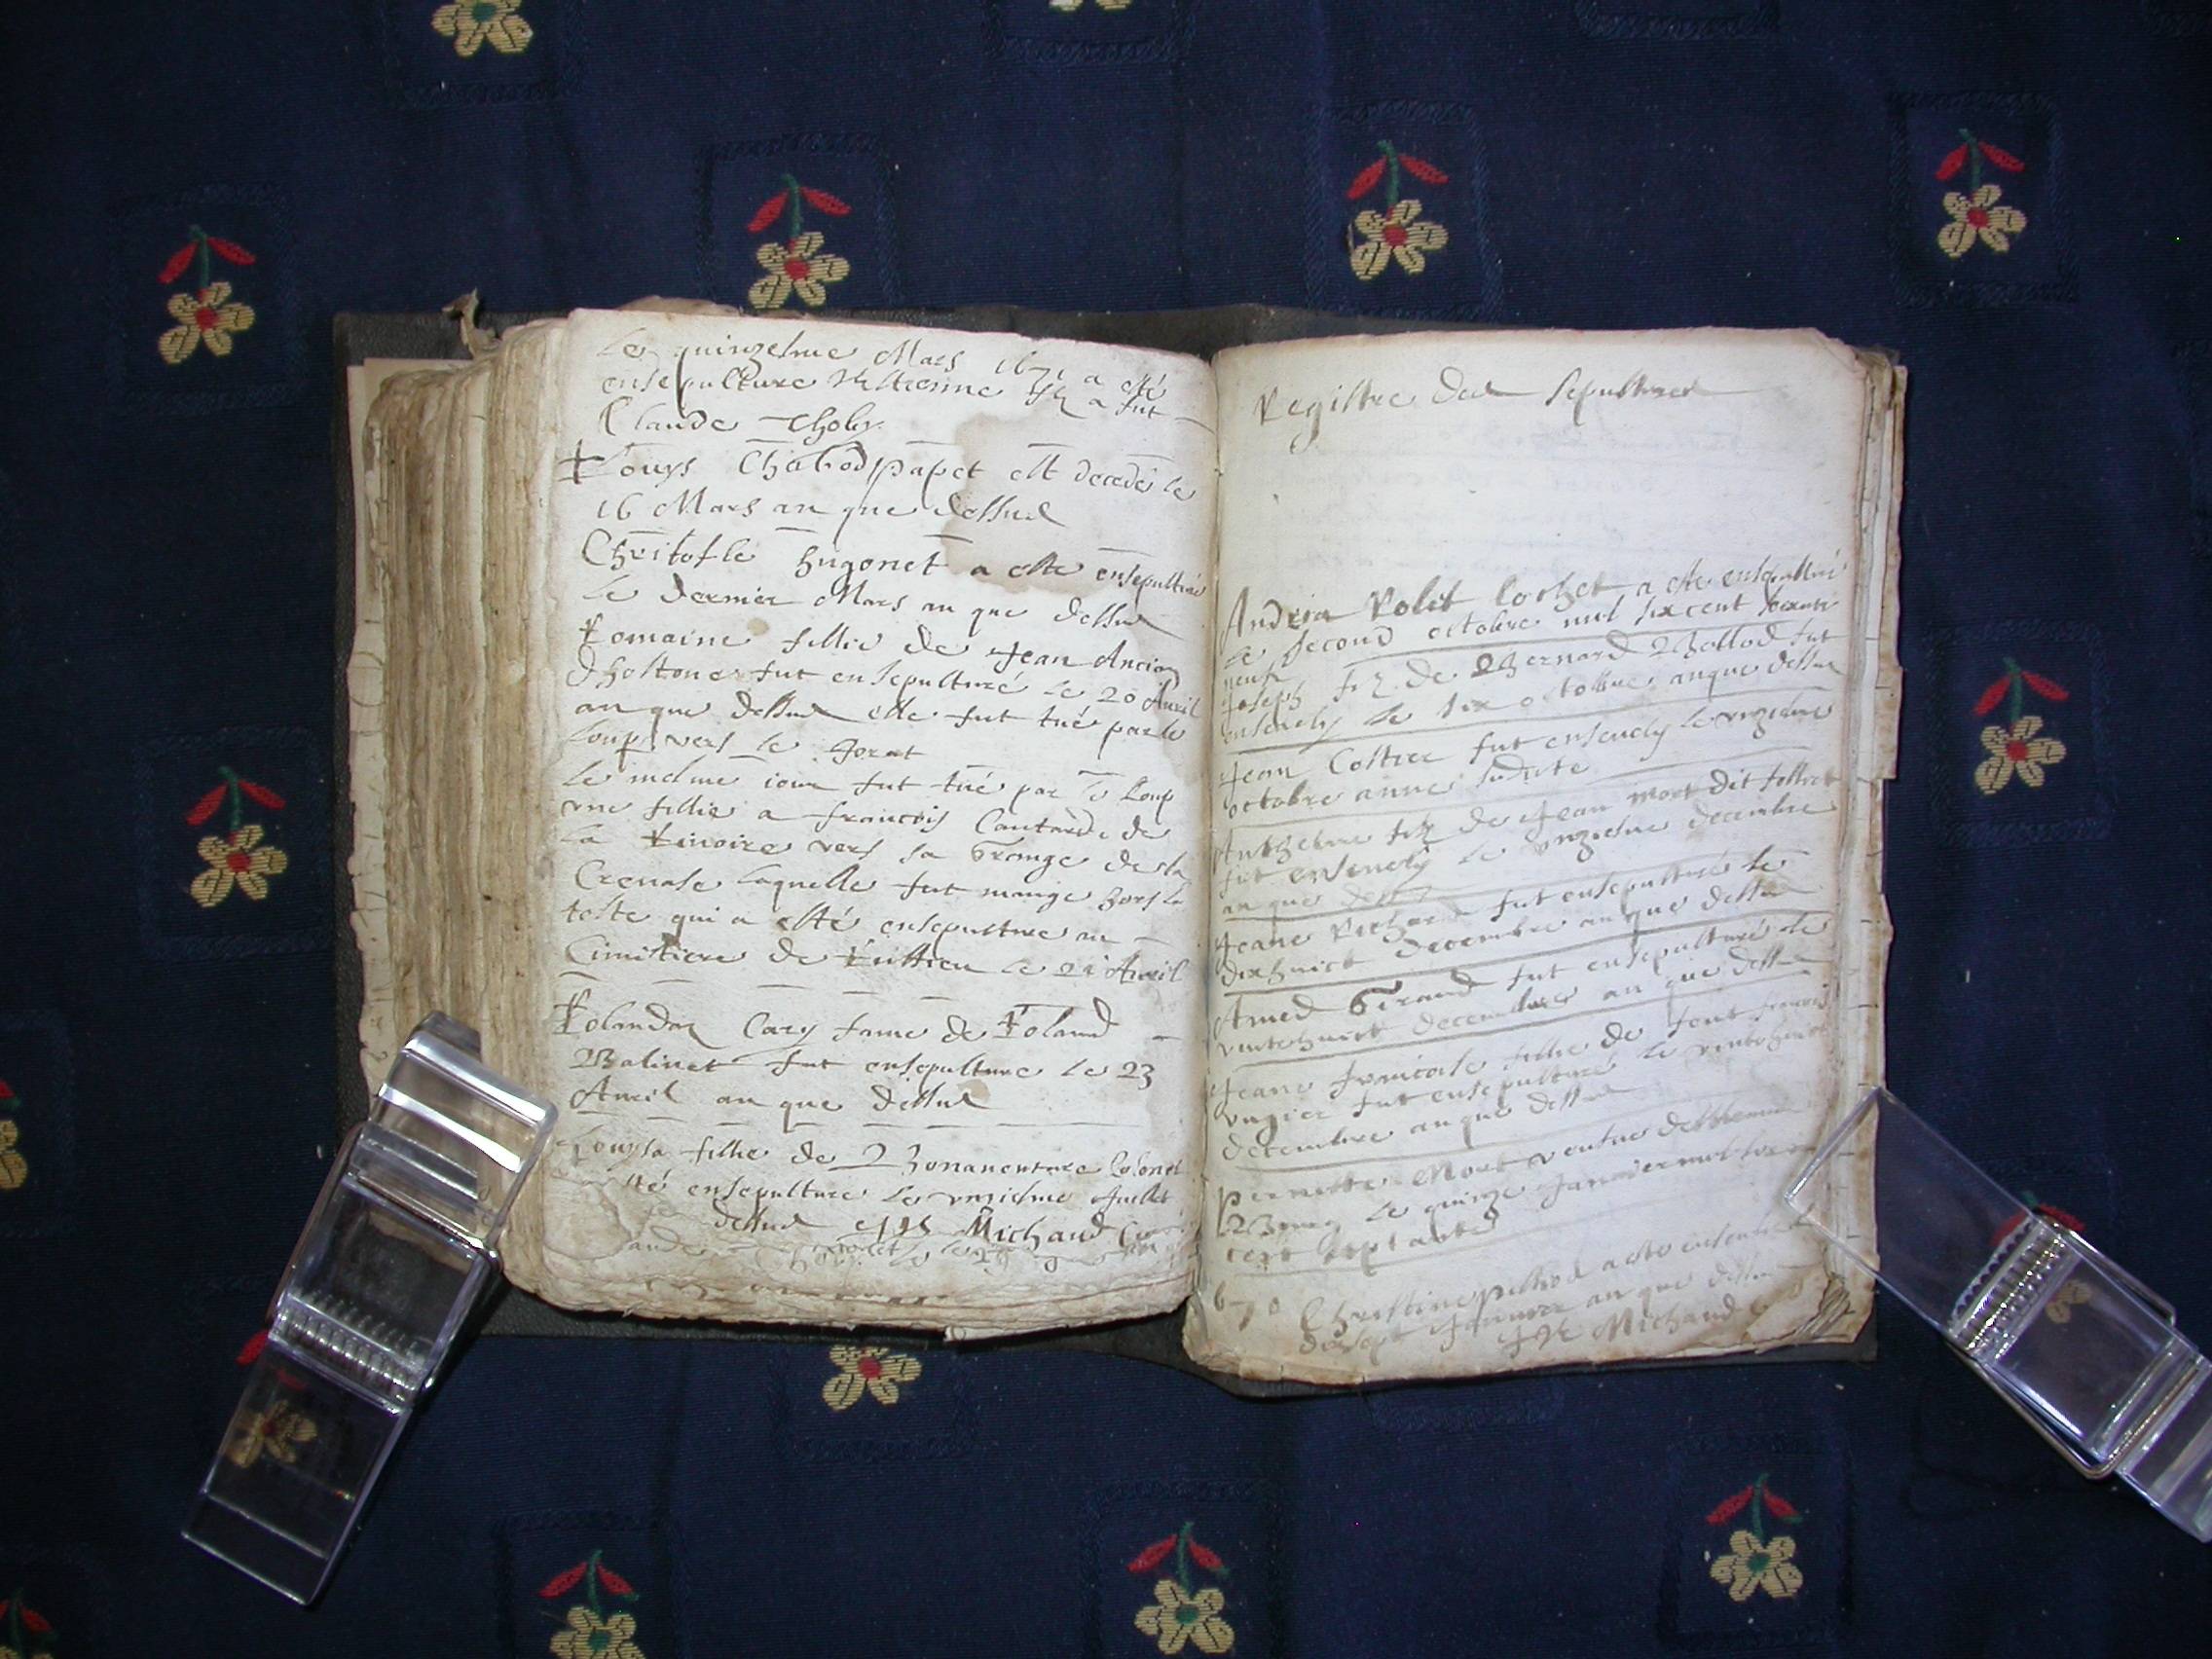 Le quinzesme Mars 1671 a esté
ensepulture Estienne filz a fut
Claude Choley
Louys Chabod papet est decedé le
16 Mars an que dessus
Christofle hugonet a esté ensepulturé
le dernier Mars an que dessus
Romaine fillie de Jean Ancian
dhostone fut ensepulturé le 20 Auril
an que dessus elle fut tué par le
loup vers le Jorat
le mesme iour fut tué par le loup
vne fillie a francois Cantarde de
la Riuoire vers sa Grange de la
Creuase laquelle fut mangé hors la
teste qui a esté ensepulture au
Cimitiere de Ruffieu le 21 Auril
Rolandaz Cary fame de Roland
Balinet fut ensepulture le 23
Auril an que dessus
Louysa fillie de Bonauenture Colonel
esté ensepulture le vnziesme Juillet
dessus Michaud
Registre des sepultures
Andrea Rolet Cochet a este ensepulturé
le second octobre mil six cent soixante
neuf
Joseph filz de Bernard Ballod fut
enseuely le six octobre an que dessus
Jean Costier fut enseuely le vnziesme
octobre anne sudite
Anthelme filz de Jean Mort dit follict
fut enseuely le vnziesme decembre
an que dessus
Jeane Richard fut ensepulturé le
dixhuict decembre an que dessus
Amed Girand fut ensepulturé le
vintehuict decembre an que dessus
Jeane francoise fillie de feut francois
vugier fut ensepulturé le vintehuict
decembre an que dessus
Pernette Mont ventue
Bourg le quinze Januier mil six
cent septante
1670 Christine pilliod a esté enseuelie
dixsept Januier an que dessus
Michaud